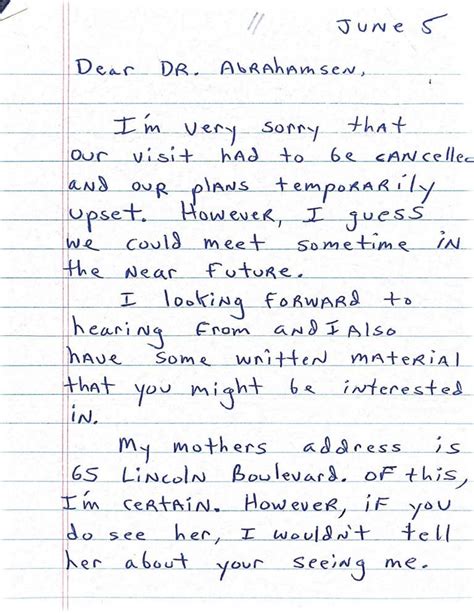 11
June 5
Dear DR. Abrahamsen,
I'm very sorry that
our visit had to be cancelled
and our plans temporarily
upset. However, I guess
we could meet sometime in
the near future.
I looking forward to
hearing from and I also
have some written material
that you might be interested
in.
My mothers address is
65 Lincoln Boulevard. Of this,
I'm certain. However, if you
do see her, I wouldn't tell
her about your seeing me.